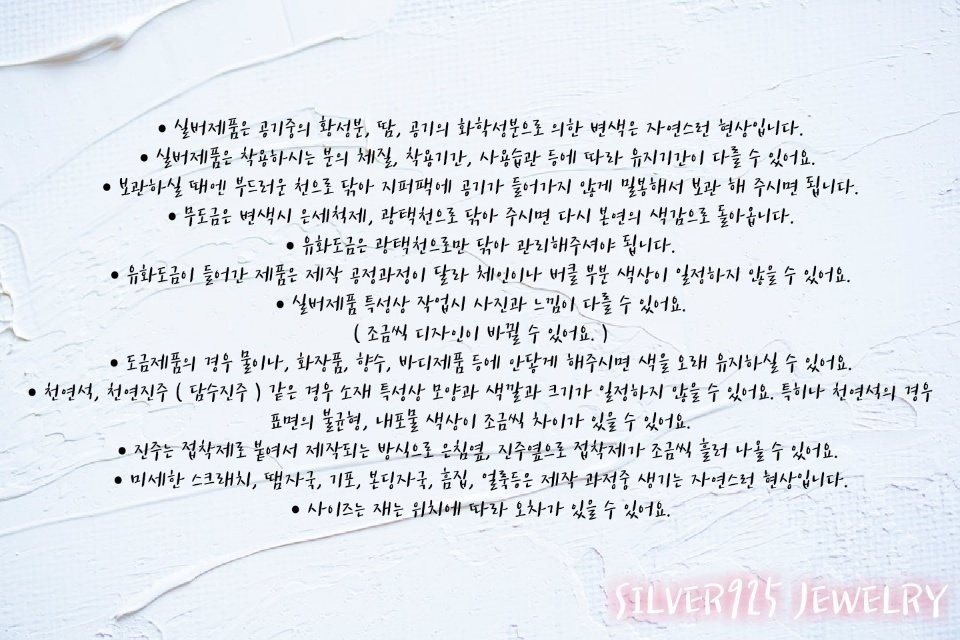 • 실버제품은 공기중의 황성분, 땀, 공기의 화학성분으로 의한 변색은 자연스런 현상입니다.
• 실버제품은 착용하시는 분의 체질, 착용기간, 사용습관 등에 따라 유지기간이 다를 수 있어요.
• 보관하실 때엔 부드러운 천으로 닦아 지퍼팩에 공기가 들어가지 않게 밀봉해서 보관 해 주시면 됩니다.
• 무도금은 변색시 은세척제, 광택천으로 닦아 주시면 다시 본연의 색감으로 돌아옵니다.
• 유화도금은 광택천으로만 닦아 관리해주셔야 됩니다.
• 유화도금이 들어간 제품은 제작 공정과정이 달라 체인이나 버클 부분 색상이 일정하지 않을 수 있어요.
• 실버제품 특성상 작업시 사진과 느낌이 다를 수 있어요.
( 조금씩 디자인이 바뀔 수 있어요. )
• 도금제품의 경우 물이나, 화장품, 향수, 바디제품 등에 안닿게 해주시면 색을 오래 유지하실 수 있어요.
• 천연석, 천연진주 ( 담수진주 ) 같은 경우 소재 특성상 모양과 색깔과 크기가 일정하지 않을 수 있어요. 특히나 천연석의 경우
표면의 불균형, 내포물 색상이 조금씩 차이가 있을 수 있어요.
• 진주는 접착제로 붙여서 제작되는 방식으로 은침옆, 진주옆으로 접착제가 조금씩 흘러 나올 수 있어요.
• 미세한 스크래치, 땜자국, 기포, 본디자국, 흠집, 얼룩등은 제작 과정중 생기는 자연스런 현상입니다.
• 사이즈는 재는 위치에 따라 오차가 있을 수 있어요.
SILVER925 JEWELRY